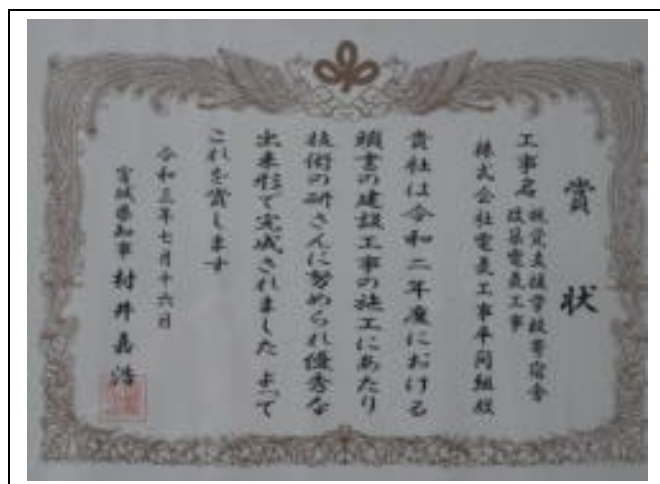 賞状
工事名 視覚支援学校寄宿舎
改築電気工事
株式会社電気工事
貴社は令和二年度における
頭書の建設工事の施工にあたり
技術の研さんに努められ優秀な
出来形で完成されました よって
これを賞します
令和三年七月十六日
宮城県知事 村井嘉浩